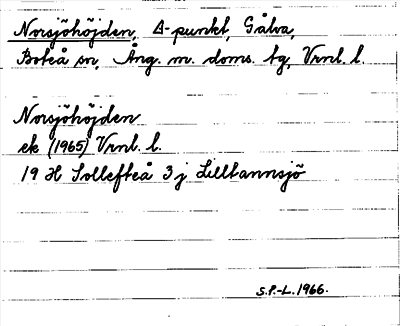 Norsjöhöjden, Δ-punkt, Gålva,
Boteå sn, Ång. m. doms. tg, Vrnl. l.
Norsjöhöjden
ek (1965) Vrnl. l.
19 H Sollefteå 3 j Lilltannsjö
S.P.-L. 1966.